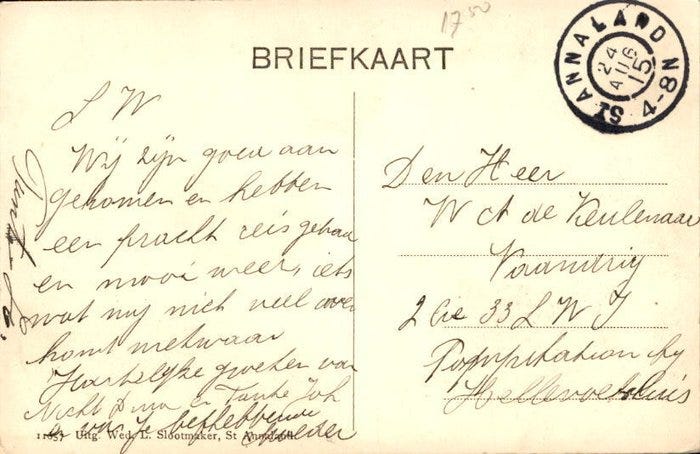 17.50
BRIEFKAART
ST ANNALAND
24 AUG 15
4-8 N
L W
Wij zijn goed aan
gekomen en hebben
een pracht reis gehad
en mooi weer, iets
wat mij niet veel over
komt nietwaar
Hartelijke groeten van
Nicht en Tante Joh
en van je liefhebbende
Moeder
11051 Uitg. Wed. L. Slootmaker, St Annaland.
Den Heer
W A de Keulenaar
Vaandrig
2 Cie 33 L W I
Pompstation by
Hellevoetsluis